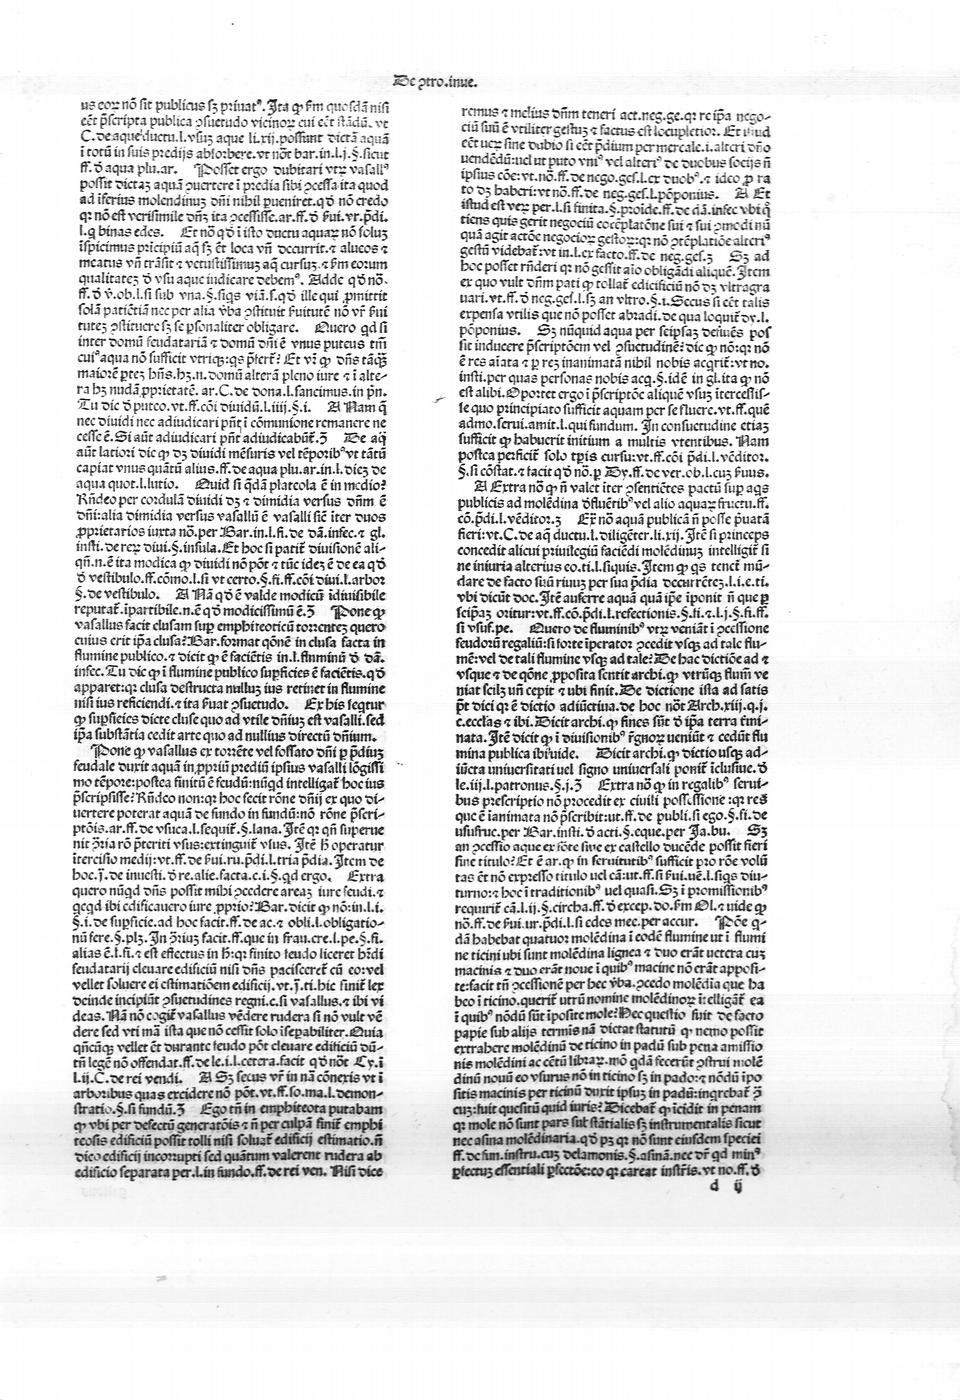 De ꝯtro.inue.
us eoꝝ nō sit publicus sꝫ priuatꝰ. Ita ꝙ ẜm quosdā nisi
C. de aque ductu.l.vsuꝫ aque li.xij. possunt dictā aquā
ī totū in suis predijs absorbere. vt not̄ bar.in.l.j.§.sicut
ff. đ aqua plu.ar. Posset ergo dubitari vtꝝ vasallꝰ
possit dictaꝫ aquā ꝯuertere ī predia sibi ꝯcessa ita quod
ad iferius molendinuꝫ dn̄i nihil ꝑueniret. qđ nō credo
l.q̄ binas edes. Et nō qđ ī isto ductu aquaꝝ nō soluꝫ
ispicimus pricipiū aq̄ sꝫ ēt loca vn̄ decurrit. ⁊ alueos ⁊
meatus vn̄ trāsit ⁊ vetustissimuꝫ aq̄ cursuꝫ. ⁊ ẜm eorum
qualitateꝫ đ vsu aque iudicare debemꝰ. Adde qđ nō.
solā patiētiā nec per alia v̄ba ꝯstituit ẜuitutē nō vr̄ ẜui
tuteꝫ ꝯstituere sꝫ se ꝑsonaliter obligare. Quero qd si
inter domū feudatariā ⁊ domū dn̄i ē vnus puteus tm̄
maiorē ꝑteꝫ hn̄s.hꝫ.n.domū alterā pleno iure ⁊ ī alte-
ra hꝫ nudā ꝓprietatē. ar.C.de dona.l.sancimus.in pn̄.
Tu dic đ puteo.vt.ff.cōi diuidū.l.iiij.§.i. A Nam q̄
nec diuidi nec adiudicari pn̄t ī cōmunione remanere ne
cesse ē. Si aūt adiudicari pn̄t adiudicabūt̄.ꝫ De aq̄
aūt latiori dic ꝙ dꝫ diuidi mēsuris vel tēporibꝰ vt tātū
capiat vnus quātū alius.ff.de aqua plu.ar.in.l.dieꝫ de
aqua quot.l.lutio. Quid si q̄dā plateola ē in medio?
Rn̄deo per cordulā diuidi dꝫ ⁊ dimidia versus dn̄m ē
dn̄i:alia dimidia versus vasallū ē vasalli sic̄ iter duos
ꝓprietarios iuxta nō.per Bar.in.l.fi.de dā.infec.⁊ gl.
insti.de reꝝ diui.§.insula. Et hoc si patit̄ diuisionē ali-
qn̄.n.ē ita modica ꝙ diuidi nō pōt ⁊ tūc ideꝫ ē de ea qđ
đ vestibulo.ff.cōmo.l.si vt certo.§.fi.ff.cōi diui.l.arbor
§.de vestibulo. A Nā qđ ē valde modicū idiuisibile
reputat̄.ipartibile.n.ē qđ modicissimū ē.ꝫ Pone ꝙ
vasallus facit clusam suꝑ emphiteoticū torrenteꝫ quero
cuius erit ip̄a clusa? Bar.format qōnē in clusa facta in
flumine publico.⁊ dicit ꝙ ē faciētis in.l.fluminū đ dā.
infec. Tu dic ꝙ ī flumine publico suꝑficies ē faciētis. qđ
apparet:qꝛ clusa destructa nulluꝫ ius retinet in flumine
nisi ius reficiendi.⁊ ita ẜuat ꝯsuetudo. Ex his seqtur
ꝙ suꝑficies dicte cluse quo ad vtile dn̄iuꝫ est vasalli.sed
ip̄a substātia cedit arte quo ad nullius directū dn̄ium.
Pone ꝙ vasallus ex torrēte vel fossato dn̄i ꝑ p̄diuꝫ
feudale duxit aquā in ꝓpriū prediū ipsius vasalli lōgissi
mo tēpore:postea finitū ē feudū:nūqd intelligat̄ hoc ius
p̄scripsisse? Rn̄deo non:qꝛ hoc fecit rōne dn̄ij ex quo di-
uertere poterat aquā de fundo in fundū:nō rōne p̄scri-
ptōis.ar.ff.de vsuca.l.sequit̄.§.lana. Itē qꝛ qn̄ superue
itercisio medij:vt.ff.de ẜui.ru.p̄di.l.tria p̄dia. Item de
hoc.j.de inuesti.đ re.alie.facta.c.i.§.qd ergo. Extra
quero nūqd dn̄s possit mihi ꝯcedere areaꝫ iure feudi.⁊
qcqd ibi edificauero iure ꝓprio? Bar.dicit ꝙ nō:in.l.i.
§.i.de suꝑficie.ad hoc facit.ff.de ac.⁊ obli.l.obligatio-
nū fere.§.plꝫ. In ꝯ̄riuꝫ facit.ff.que in frau.cre.l.pe.§.fi.
feudatarij eleuare edificiū nisi dn̄s pacisceret̄ cū eo:vel
vellet soluere ei estimatiōem edificij.vt.j.ti.hic finit̄ lex
deinde incipiūt ꝯsuetudines regni.c.si vasallus.⁊ ibi vi
deas. Nā nō cogit̄ vasallus vēdere rudera si nō vult vē
dere sed vti mā ista que nō cessit solo īseꝑabiliter. Quia
qn̄cūqꝫ vellet ēt durante feudo pōt eleuare edificiū dū-
tn̄ legē nō offendat.ff.de le.i.l.cetera.facit qđ nōt Cy.ī
l.ij.C.de rei vendi. A Sꝫ secus vr̄ in nā cōnexis vt ī
arboribus quas excidere nō pōt.vt.ff.so.ma.l.demon-
stratio.§.si fundū.ꝫ Ego tn̄ in emphiteota putabam
ꝙ vbi per defectū generatōis ⁊ n̄ per culpā finit̄ emphi
teosis edificiū possit tolli nisi soluat̄ edificij estimatio.n̄
dico edificij incorrupti sed quātum valerent rudera ab
edificio separata per.l.in fundo.ff.de rei ven. Nisi dice
remus ⁊ melius dn̄m teneri act.neg.ge.qꝛ re ip̄a nego-
ciū suū ē vtiliter gestuꝫ ⁊ factus est locupletior.
ēēt ueꝝ sine dubio si ēēt p̄dium per mercale.i.alteri dn̄o
uendēdū:uel ut puto vniꝰ vel alteriꝰ de duobus socijs n̄
ipsius cōe:vt.nō.ff.de nego.ges.l.ex duobꝰ.⁊ ideo ꝓ ra
to dꝫ haberi:vt nō.ff.de neg.ges.l.pōponius. A Et
istud est veꝝ per.l.si finita.§.p̄oide.ff.de dā.infec vbi q̄
tiens quis gerit negociū cōtēplatōne sui ⁊ sui ꝯmodi nū
quā agit actōe negocioꝝ gestoꝝ:qꝛ nō ꝯtēplatiōe alteriꝰ
gestū videbat̄:vt in.l.ex facto.ff.de neg.ges.ꝫ Sꝫ ad
hoc posset rn̄deri qꝛ nō gessit aīo obligādi aliquē. Item
ex quo vult dn̄m pati ꝙ tollat̄ edicificiū nō dꝫ vltragra
uari.vt.ff.đ neg.ges.l.sꝫ an vltro.§.i. Secus si ēēt talis
expensa vtilis que nō posset abradi.de qua loquit̄ dy.l.
pōponius. Sꝫ nūquid aqua per seipsaꝫ defluēs pos
sit inducere p̄scriptōem vel ꝯsuetudinē? dic ꝙ nō:qꝛ nō
ē res aīata ⁊ ꝑ reꝫ inanimatā nihil nobis acqrit̄:vt no.
insti.per quas personas nobis acq.§.idē in gl.ita ꝙ nō
est alibi. Oportet ergo ī p̄scriptōe aliquē vsuꝫ itercessis-
se quo principiato sufficit aquam per se fluere.vt.ff.quē
admo.serui.amit.l.qui fundum. In consuetudine etiaꝫ
sufficit ꝙ habuerit initium a multis vtentibus. Nam
postea perficit̄ solo tꝑis cursu:vt.ff.cōi p̄di.l.vēditor.
§.si cōstat.⁊ facit qđ nō.ꝑ Dy.ff.de ver.ob.l.cuꝫ ẜuus.
A Extra nō ꝙ n̄ valet iter ꝯsentiētes pactū suꝑ aqs
publicis ad molēdina đfluētibꝰ vel alio aquaꝝ fructu.ff.
cō.p̄di.l.vēditor.ꝫ Ex̄ nō aquā publicā n̄ posse p̄uatā
fieri:vt.C.de aq̄ ductu.l.diligēter.li.xij. Itē si princeps
concedit alicui priuilegiū faciēdi molēdinuꝫ intelligit̄ si
ne iniuria alterius eo.ti.l.siquis. Item ꝙ qs tenet̄ mū-
dare de facto suū riuuꝫ per sua p̄dia decurrēteꝫ.l.i.e.ti.
vbi dicūt doc. Itē auferre aquā quā ip̄e iponit n̄ que ꝑ
seip̄aꝫ oritur:vt.ff.cō.p̄di.l.refectionis.§.fi.⁊.l.j.§.fi.ff.
si vsuf.pe. Quero de fluminibꝰ vtꝝ veniāt ī ꝯcessione
feudorū regaliū:si forte iperator ꝯcedit vsqꝫ ad tale flu-
mē:vel de tali flumine vsqꝫ ad tale? De hac dictiōe ad ⁊
vsque ⁊ de qōne ꝓposita sentit archi.ꝙ vtrūqꝫ flum̄ ve
niat scilꝫ un̄ cepit ⁊ ubi finit. De dictione ista ad satis
pt̄ dici qꝛ ē dictio adiūctiua.de hoc nōt Arch.xiij.q.j.
c.ecclas ⁊ ibi. Dicit archi.ꝙ fines sūt đ ip̄a terra t̄mi-
nata. Itē dicit ꝙ ī diuisionibꝰ r̄gnoꝝ ueniūt ⁊ cedūt flu
mina publica ibi uide. Dicit archi.ꝙ dictio usqꝫ ad-
iūcta uniuersitati uel signo uniuersali ponit̄ īclusiue.đ
le.iij.l.patronus.§.j.ꝫ Extra nō ꝙ in regalibꝰ serui-
bus prescriptio nō procedit ex ciuili possessione:qꝛ res
que ē ianimata nō p̄scribit:ut.ff.de publi.si ego.§.si.de
usufruc.per Bar.insti.đ acti.§.eque.per Ja.bu. Sꝫ
an ꝯcessio aque ex fōte siue ex castello ducēde possit fieri
sine titulo? Et ē ar.ꝙ in seruitutibꝰ sufficit pro rōe volū
tas ēt nō expresso titulo uel cā:ut.ff.si ẜui.uē.l.siqs diu-
turno:⁊ hoc ī traditionibꝰ uel quasi. Sꝫ ī promissionibꝰ
requirit̄ cā.l.ij.§.circha.ff.đ excep.do.ẜm Ol.⁊ uide ꝙ
nō.ff.de ẜui.ur.p̄di.l.si edes mee.per accur. Pōe q̄-
dā habebat quatuor molēdina ī eodē flumine ut ī flumi
ne ticini ubi sunt molēdina lignea ⁊ duo erāt uetera cuꝫ
macinis ⁊ duo erāt noue ī quibꝰ macine nō erāt apposi-
te:facit tn̄ ꝯcessionē per hec v̄ba.ꝯcedo molēdia que ha
beo ī ticino.querit̄ utrū nomine molēdinoꝝ ī:elligāt̄ ea
ī quibꝰ nōdū sūt īposite mole? Hec questio fuit de facto
papie sub alijs termis nā dictat statutū ꝙ nemo possit
extrahere molēdinū de ticino in padū sub pena amissio
nis molēdini ac cētū libraꝝ.mō qdā fecerūt ꝯstrui molē
dinū nouū eo vsurus nō in ticino sꝫ in pado:⁊ nōdū īpo
sitis macinis per ticinū duxit ipsuꝫ in padū:
cuꝫ:fuit quesitū quid iuris? Dicebat̄ ꝙ īcidit in penam
qꝛ mole nō sunt pars substātialis sꝫ instrumentalis sicut
nec asina molēdinaria.qđ pꝫ qꝛ nō sunt eiusdem speciei
ff.de fun.instru.cuꝫ delamonis.§.asinā.nec dr̄ qd minꝰ
ꝑfectuꝫ essentiali ꝑfectōe:eo qꝛ careat instr̄is.vt no.ff.đ
d ij